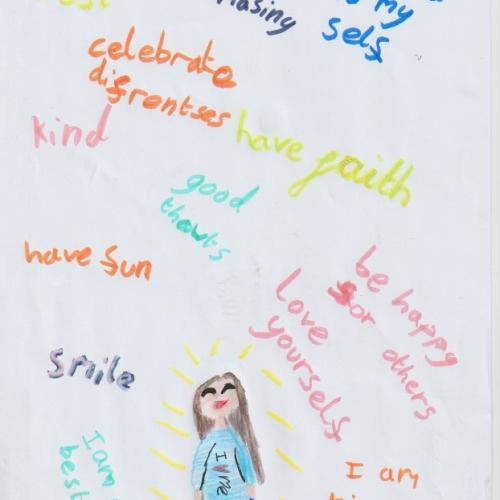 my
self
celebrate
difrentses
kind
have faith
good
thawts
have fun
be happy
for others
love
yourself
smile
I am
best
I ♥ me
I am